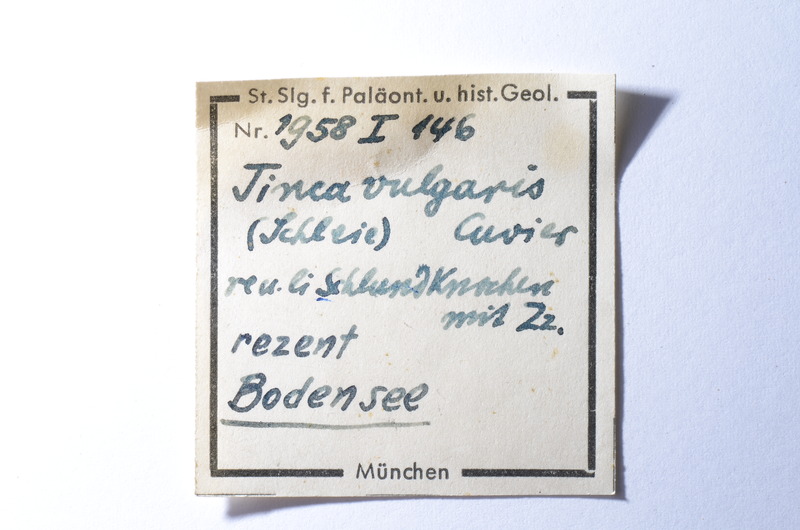 St. Slg. f. Paläont. u. hist. Geol.
Nr. 1958 I 146
Tinca vulgaris
(Schleie) Cuvier
re u. li Schlundknochen
mit Zz.
rezent
Bodensee
München